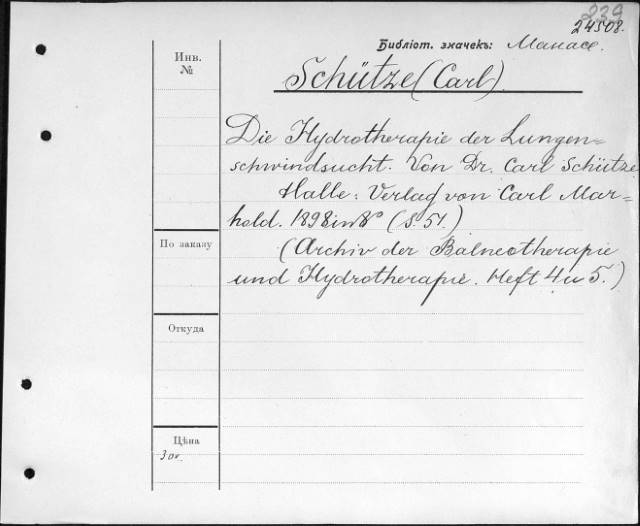 239
24508.
Инв. №
Библіот. значекъ: Манасе.
Schütze (Carl)
Die Hydrotherapie der Lungen=
schwindsucht. Von Dr. Carl Schütze
Halle: Verlag von Carl Mar=
hold. 1898 in 8° (S. 51.)
По заказу
(Archiv der Balneotherapie
und Hydrotherapie. Heft 4 u 5.)
Откуда
Цѣна